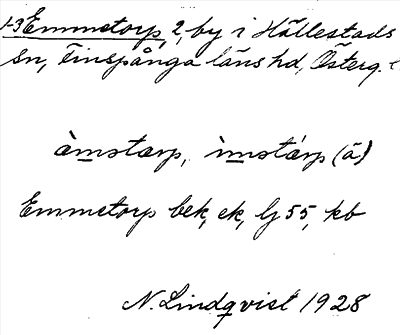 1-3 Emmetorp, 2, by i Hällestads
sn, Finspånga läns hd, Österg.
àmstarp, ìmstárp (ä)
Emmetorp bek, ek, lj 55, kb
N. Lindqvist 1928